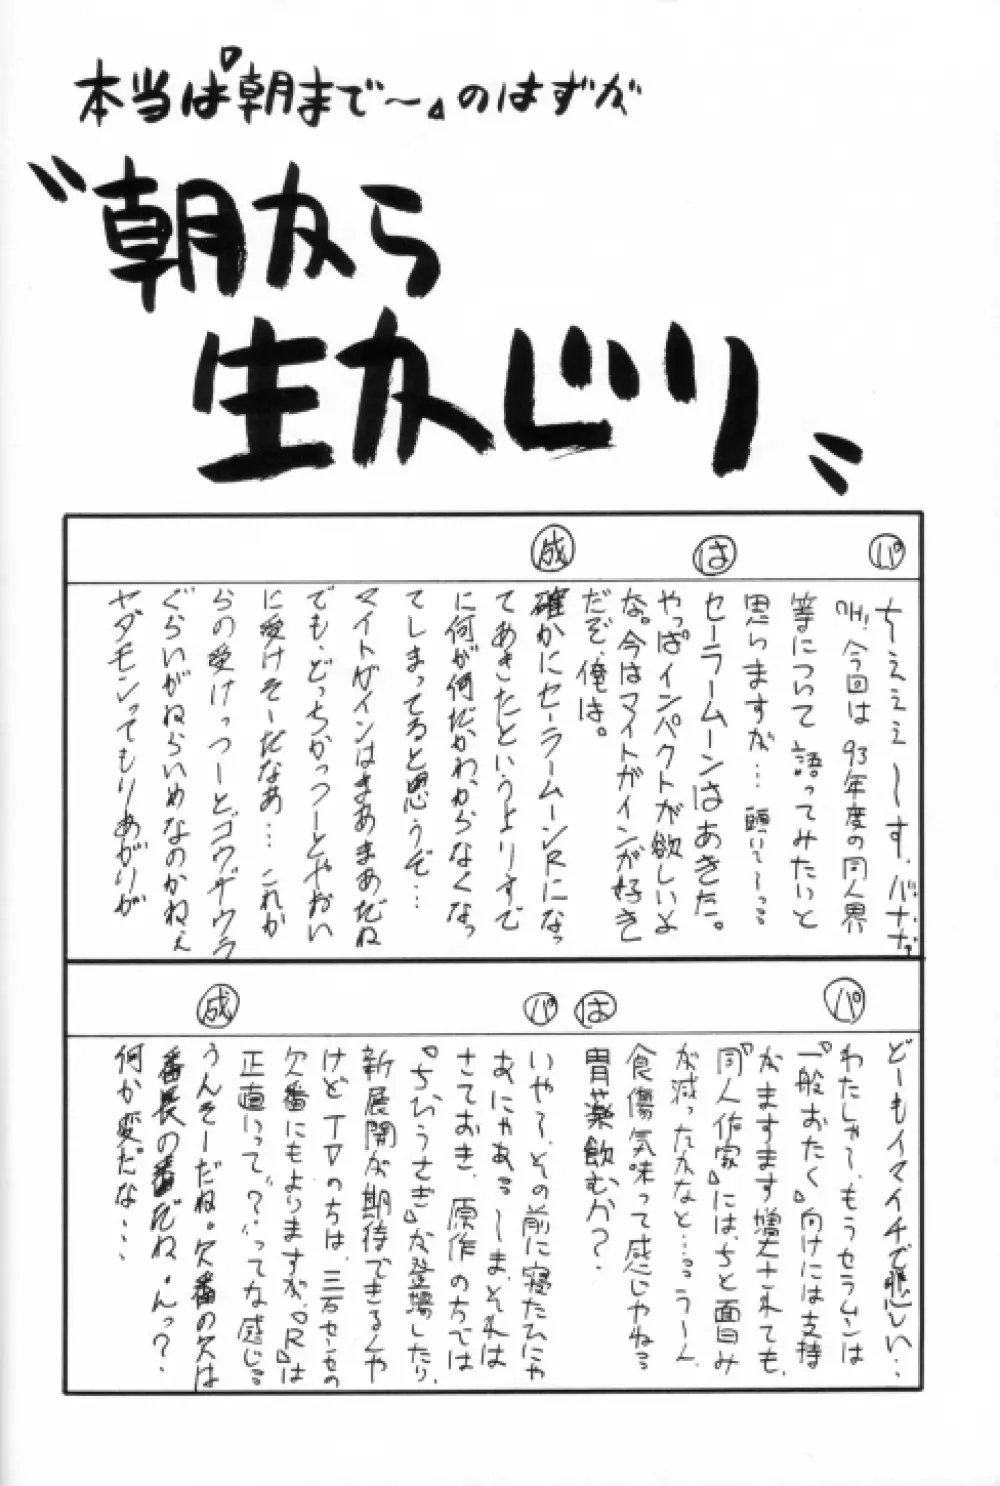 本当は『朝まで〜』のはずが
〝朝から
生かじり〟
パ
ちーえええ〜〜す。バナナ
OH!今回は93年度の同人界
等について語ってみたいと
思いますが…
は
セーラームーンはあきた。
やっぱインパクトが欲しいよ
な。今はマイトガインが好き
だぞ、俺は。
成
確かにセーラームーンRになっ
てあきたというよりすで
に何が何だかわからなくなっ
てしまってると思うぞ…
マイトガインはまあまあだね
でも、どっちかっつーとやおい
に受けそーだなあ…これか
らの受けっつーと、ゴウザウラ
ぐらいがねらいめなのかねぇ
ヤダモンってもりあがりが
どーもイマイチで悲しい‥
パ
わたしゃ〜、もうセラムンは
『一般おたく』向けには支持
がますます増大されても、
『同人作家』にはちと面白み
が減ったかなと…うーん
食傷気味って感じやね
は
胃薬飲むか？
パ
いや〜、その前に寝たひにゃ
あにゃあ〜しま、それは
さておき、原作の方では
『ちびうさぎ』が登場したり、
新展開が期待できるんや
けどTVのちは、三石センセの
欠番にもよりますが、『R』は
正直いって〝？〟ってな感じ
成
うんそーだね。欠番の欠は
番長の番だね。んっ？
何か変だな・・・・